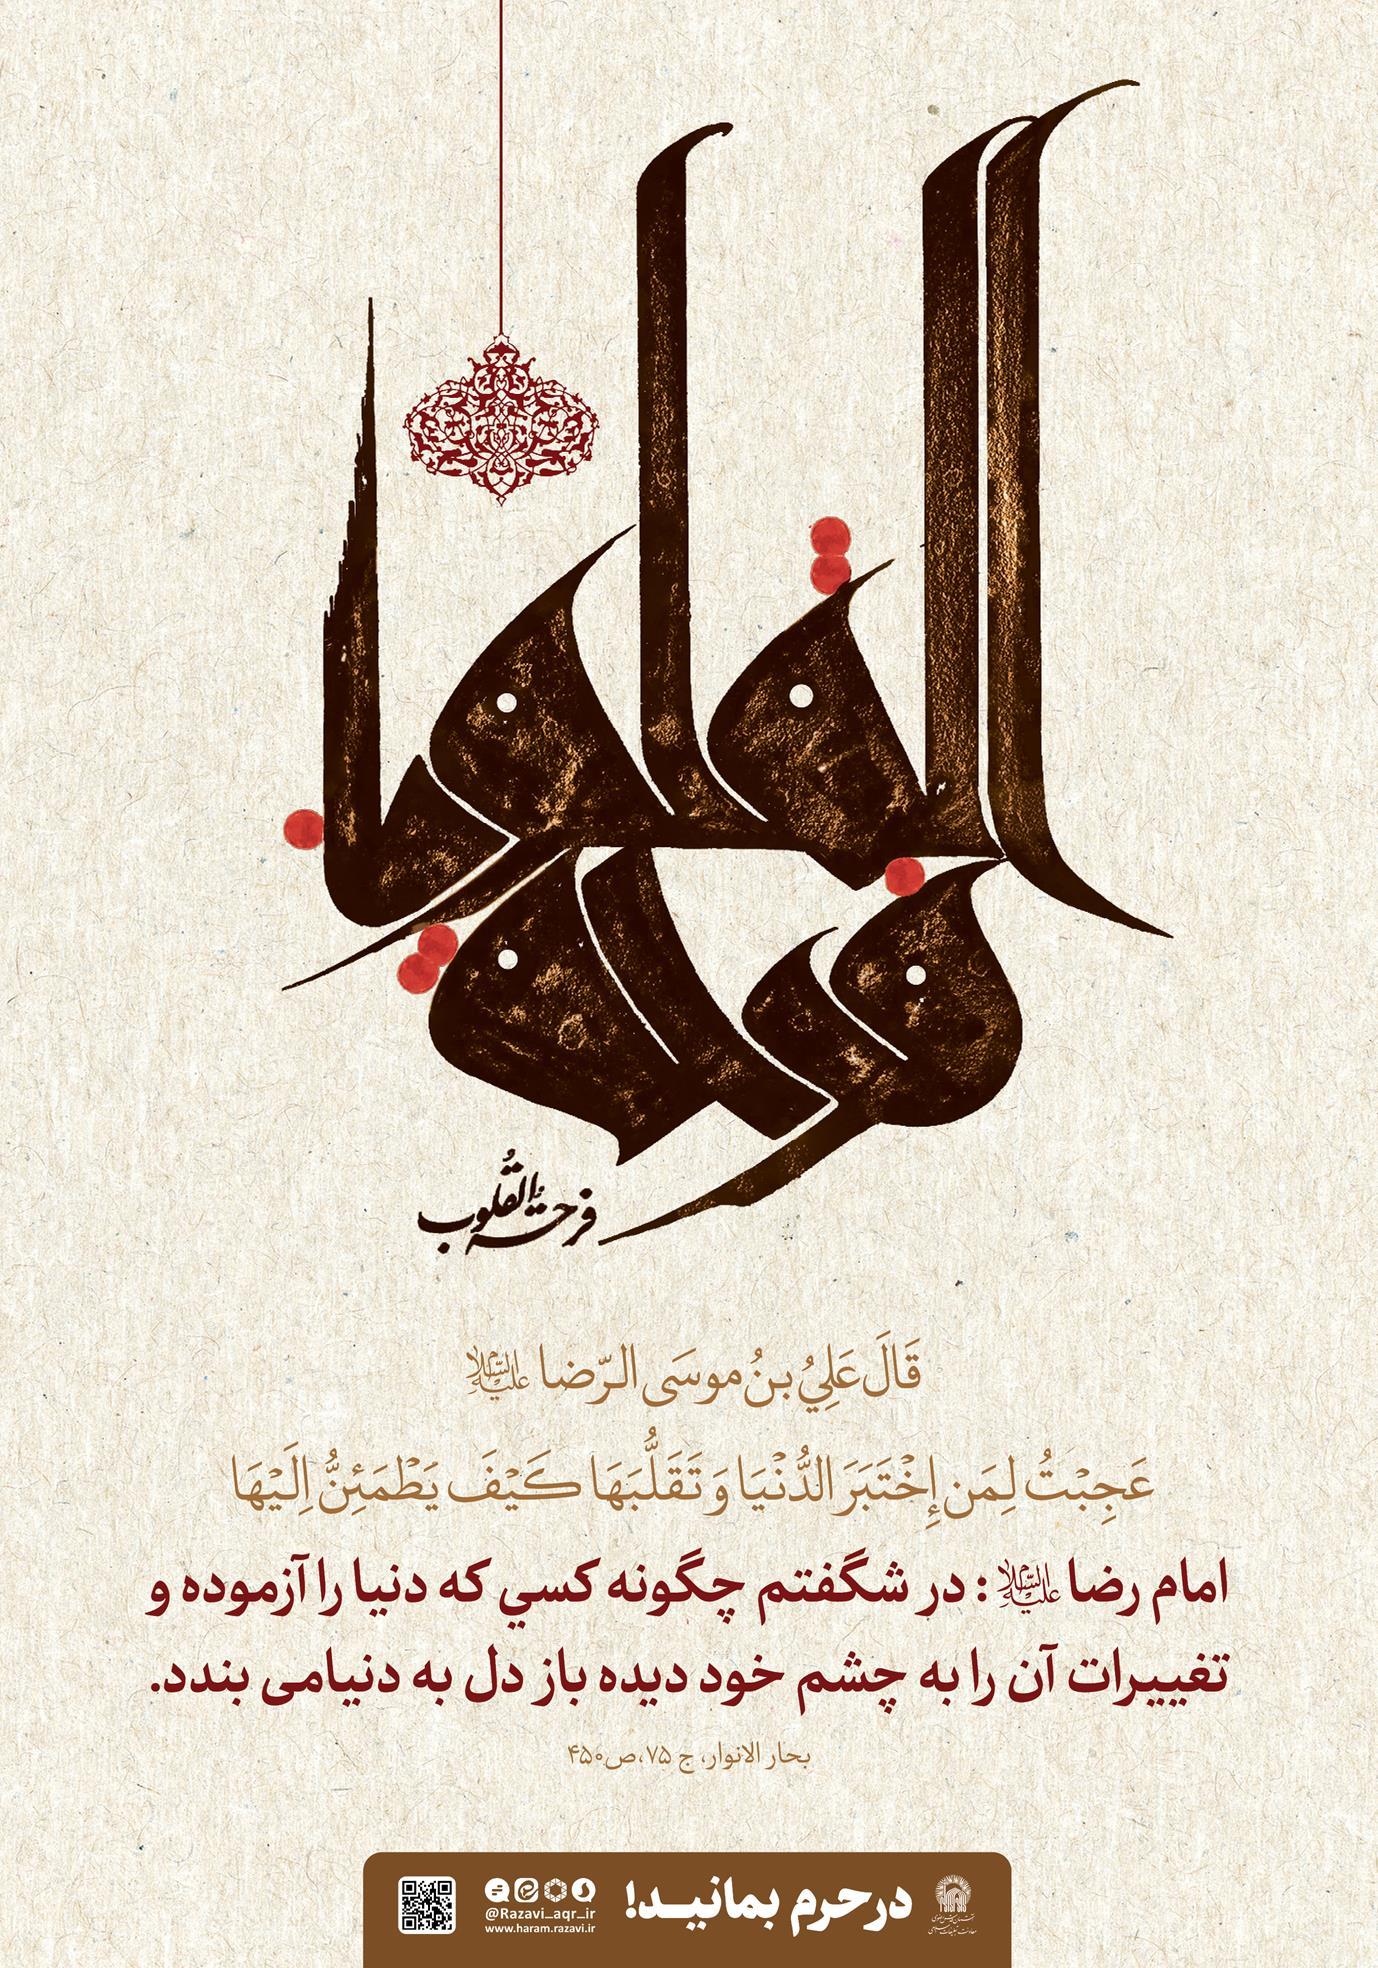 فرحة القلوب
فرحة القلوب
قَالَ عَلِيُ بنُ موسَى الرّضا علیه السلام
عَجِبْتُ لِمَن إِخْتَبَرَ الدُّنْيَا وَ تَقَلُّبَهَا كَيْفَ يَطْمَئِنُّ إِلَيْهَا
امام رضا علیه السلام : در شگفتم چگونه کسي که دنیا را آزموده و
تغییرات آن را به چشم خود دیده باز دل به دنیا می بندد.
بحار الانوار، ج ۷۵، ص۴۵۰
در حرم بمانید!
@Razavi_aqr_ir
www.haram.razavi.ir